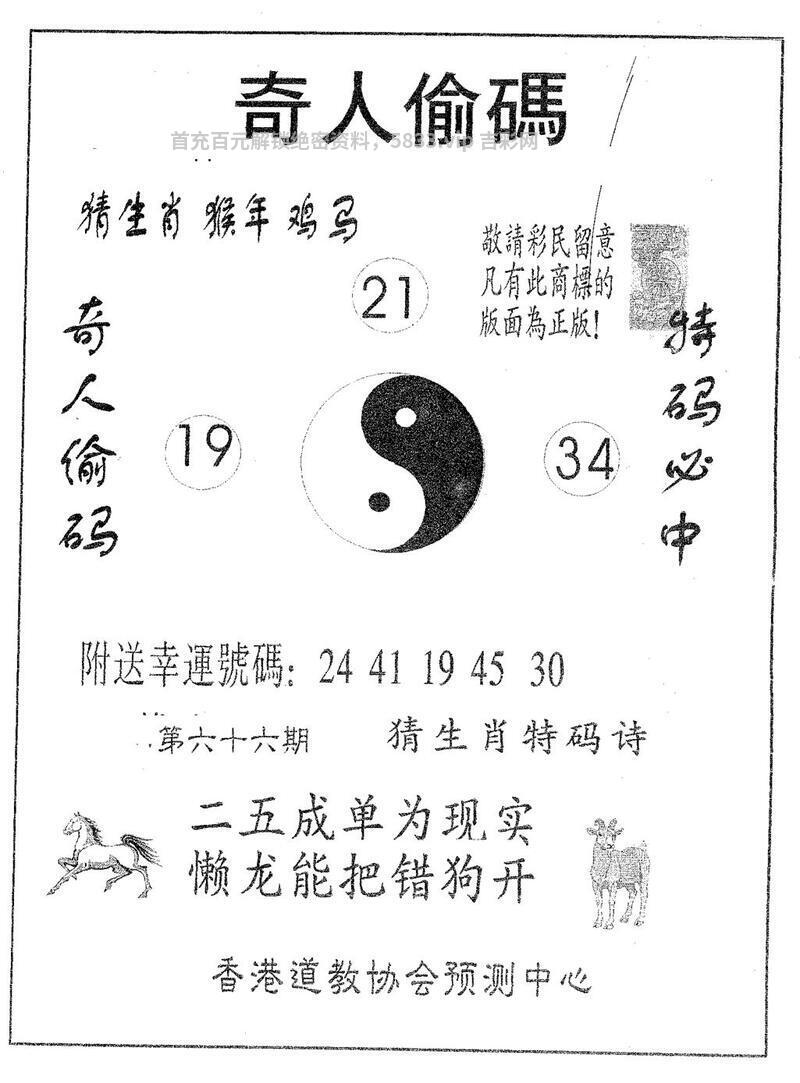 奇人偷碼
首充百元解锁绝密资料，5833.vip 吉彩网
猜生肖 猴年 鸡马
敬請彩民留意
凡有此商標的
版面為正版！
21
奇人偷码
19
34
特码必中
附送幸運號碼：24 41 19 45 30
第六十六期
猜生肖特码诗
二五成单为现实
懒龙能把错狗开
香港道教协会预测中心